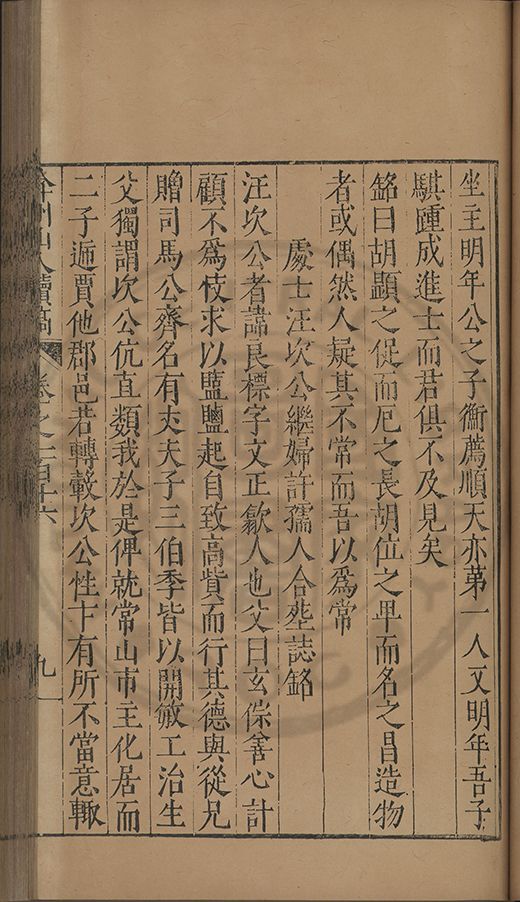 坐主明年公之子衡薦順天亦第一人又明年吾子
騏踵成進士而君俱不及見矣
銘曰胡顯之促而厄之長胡位之卑而名之昌造物
者或偶然人疑其不常而吾以為常
處士汪次公繼婦許孺人合塟誌銘
汪次公者諱良標字文正歙人也父曰玄保善心計
顧不為忮求以鹽鹽起自致高貲而行其德與從兄
贈司馬公齊名有丈夫子三伯季皆以開敏工治生
父獨謂次公伉直類我於是俾就常山市主化居而
二子遞賈他郡邑若轉轂次公性卞有所不當意輒
弇州山人續稿
卷之一百十六
九